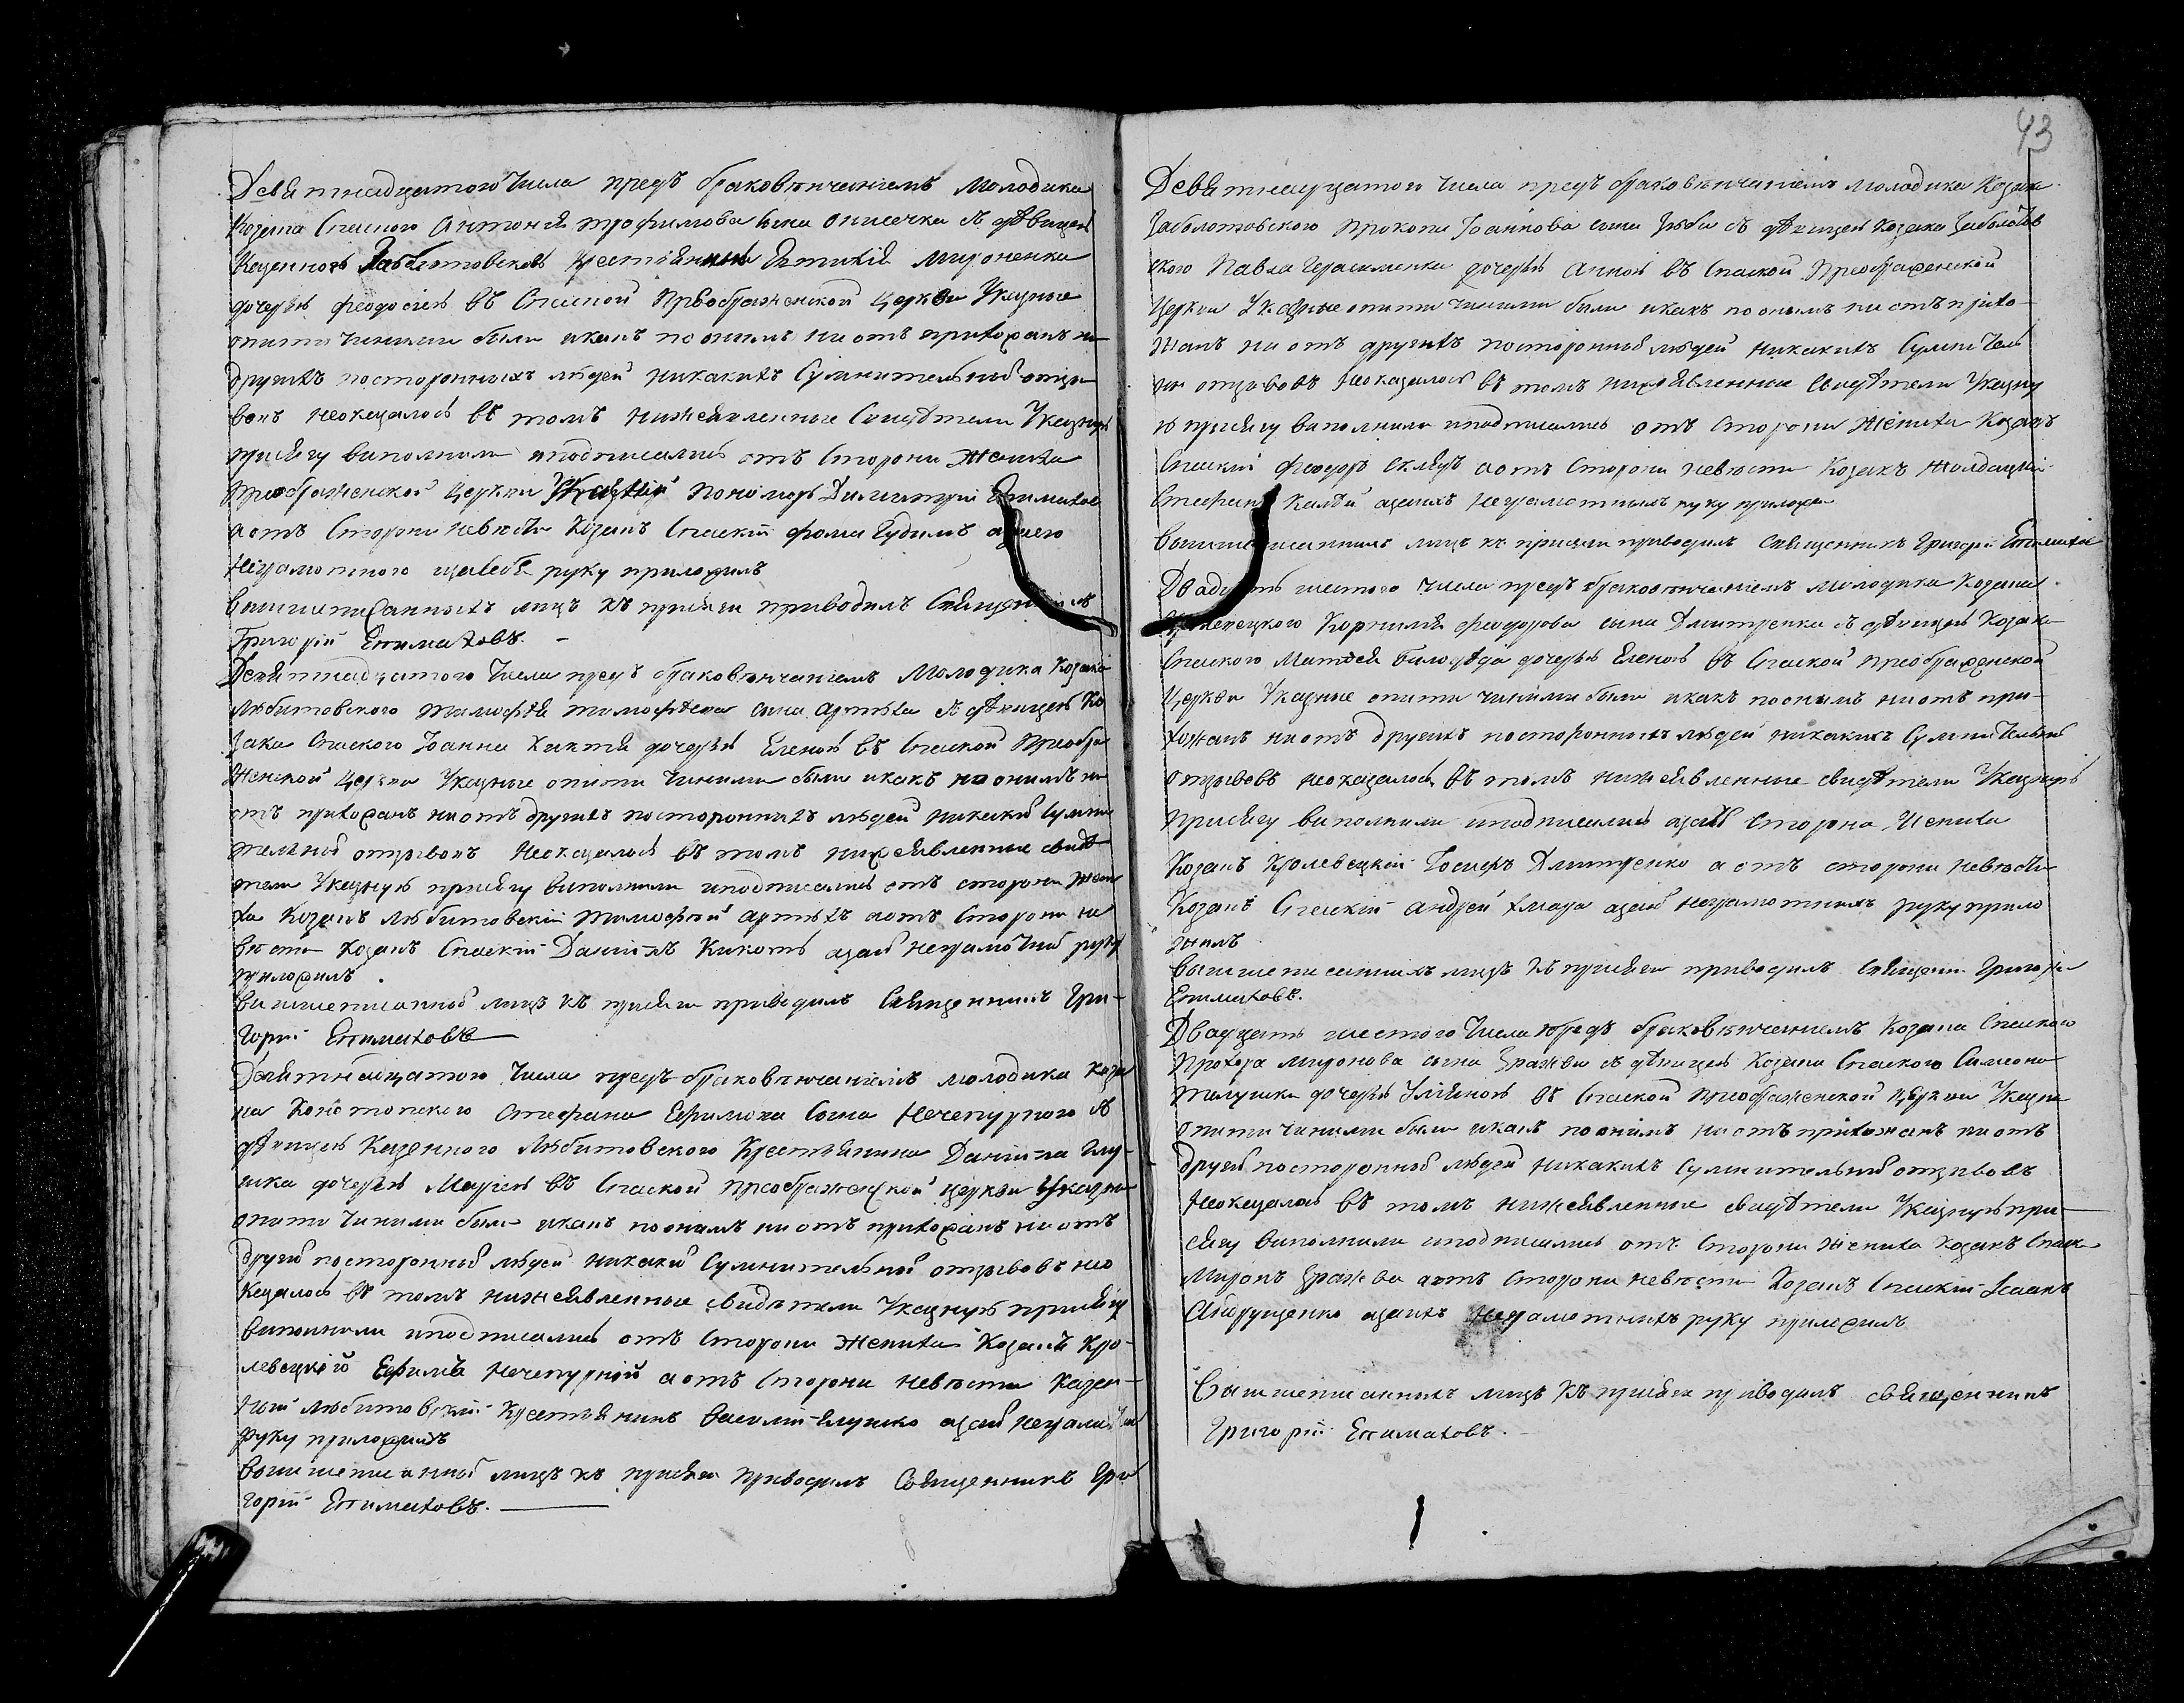 Девятнадцатого Числа предъ браковѣнчаніемъ Молодика
Козака Спаского Антонія трофимова сина Онисечка съ дѣвицею
Казенною крестіянина Евтихія Мироненка
дочерью феодосіею въ Спаской Преображенской Церкви Указные
опити чиними были икакъ по онимъ ни отъ прихожанъ ни
другихъ постороннихъ людей никакихъ Сумнительнихъ отзи
вовъ неоказалось въ томъ нижеявленные Свидѣтели Указную
присягу виполнили иподписались отъ Сторони Жениха
Преображенской Церкви Пономарь Димитрій Епимахов
аотъ Сторони невѣсти Козакъ Спаскій фома Гудимъ
неграмотного руку приложилъ
вишшеписанныхъ лицъ къ присяги приводилъ Священникъ
Григорій Епимаховъ. —
Девятнадцатого Числа предъ браковѣнчаніемъ Молодика Козака
Любитовского Тимофѣя тимофѣева сина Артюха съ дѣвицею Ко
зака Спаского Іоанна дочерью Еленою въ Спаской Преобра
женской Церкви Указные опити Чиними были икакъ по онимъ ни
отъ прихожанъ ни отъ другихъ постороннихъ людей никакихъ Сумни
тельнихъ отзивовъ Неоказалось въ томъ нижеявленные свидѣ
тели Указную присягу виполнили иподписались отъ сторони Жени
ха Козакъ Любитовскій Тимофѣй Артюхъ аотъ Сторони не
вѣсти Козакъ Спаскій Даніилъ Кикоть неграмотних руку
приложилъ.
вишшеписанных лицъ къ присяги приводилъ Священникъ Гри-
горій Епимаховъ
Девятнадцатого Числа предъ браковѣнчаніемъ молодика Коза
ка Конотопского Стефана Ефимова Сина Нечепурного съ
дѣвицею Казенного Любитовского Крестьянина Даніила Глу-
шка дочерью Маріею въ Спаской преображенской церкви Указни
опити Чиними были икакъ поонимъ ни отъ прихожанъ ни отъ
другихъ посторонних людей никаких Сумнительних отзивовъ нео
казалось въ томъ нижеявленные свидѣтели Указную присягу
виполнили иподписались отъ Сторони Жениха Козакъ Кро-
левецкій Ефимъ Нечепурній аотъ Сторони невѣсти Казен-
ний любитовскій Крестьянинъ Василій Глушко неграмотних
руку приложилъ
вишшеписанних лицъ къ присяги приводилъ Священникъ Гри
горій Епимаховъ.
43
Девятнадцатого Числа предъ браковѣнчаніемъ молодика Козака
Заболотовского Прокопа Іоаннова сина съ дѣвицею Козака Заболотов
ского Павла Герасименка дочерью Анною въ Спаской Преображенской
Церкви Указные опити чиними были икакъ поонымъ ни отъ прихо-
жанъ ни отъ другихъ посторонних людей никакихъ Сумнитель
ни отзывовъ неоказалось въ томъ нижеявленние свидѣтели Указну
ю присягу виполнили иподписались отъ Сторони Жениха Козакъ
Спаскій Феодоръ аотъ Сторони невѣсти Козакъ
Стефанъ неграмотнымъ руку приложи
вишшеписаннихъ лицъ къ присяги приводилъ священникъ Григорій Епимахов
Двадцать шестого числа предъ браковѣнчаніемъ молодика Козака
Кролевецкого Корнилія Феодорова сина Дмитренка съ дѣвицею Козака
Спаского Матѳея Билодѣда дочерью Еленою въ Спаской преображенской
Церкви Указные опити чиними были икакъ поонымъ ни отъ при-
хожанъ ни отъ другихъ постороннихъ людей никакихъ Сумнительни
отзывовъ неоказалось въ томъ нижеявленные свидѣтели Указную
присягу виполнили иподписались Сторона Жениха
Козакъ Кролевецкій Іосифъ Дмитренко а отъ сторони невѣсти
Козакъ Спаскій Андрей Хмара неграмотнихъ руку прило
жилъ
вишшеписаннихъ лицъ къ присяги приводилъ священ. Григорій
Епимаховъ.
Двадцать шестого Числа предъ браковѣнчаніемъ Козака Спаского
Прохора Миронова сина Зражви съ дѣвицею Козака Спаского Симеона
дочерью Уліяною въ Спаской преображенской церкви Указни
опити чиними были икакъ поонимъ ни отъ прихожанъ ни отъ
другихъ посторонних людей никакихъ Сумнительних отзивовъ
неоказалось въ томъ нижеявленние свидѣтели Указную при-
сягу виполнили иподписались отъ Сторони Жениха Козакъ Спаск
Миронъ Зражва аотъ Сторони невѣсти Козакъ Спаскій Исаакъ
Андрущенко неграмотнихъ руку приложилъ
Вишшеписаннихъ лицъ къ присяги приводилъ священникъ
Григорій Епимаховъ.